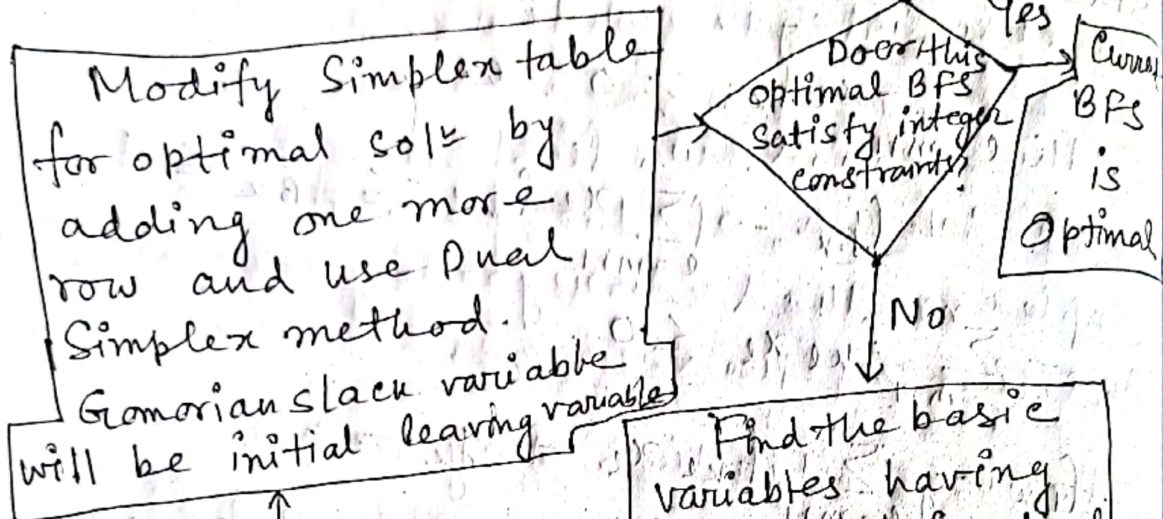 Modify Simplex table
for optimal solⁿ by
adding one more
row and use Dual
Simplex method.
Gomorian slack variable
will be initial leaving variable
Yes
Does this
optimal BFS
satisfy integer
constraints?
Current
BFS
is
Optimal
No
Find the basic
variables having